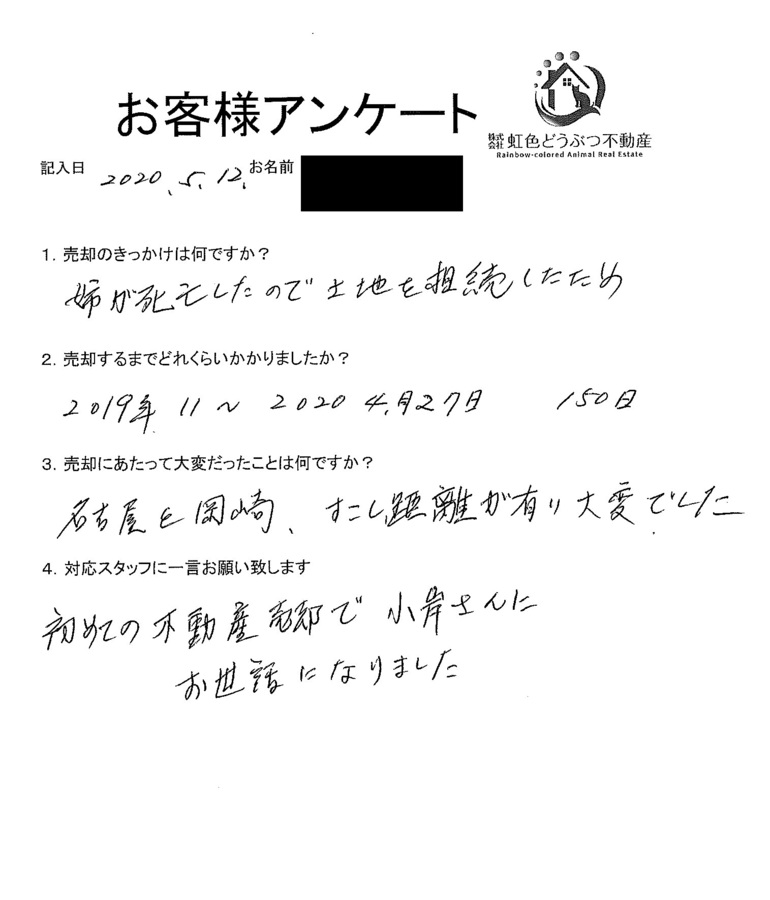 お客様アンケート
株式会社 虹色どうぶつ不動産
Rainbow-colored Animal Real Estate
記入日 2020.5.12. お名前
1. 売却のきっかけは何ですか？
姉が死亡したので土地を相続したため
2. 売却するまでどれくらいかかりましたか？
2019年 11～ 2020 4月27日 150日
3. 売却にあたって大変だったことは何ですか？
名古屋と岡崎、すこし距離が有り大変でした
4. 対応スタッフに一言お願い致します
初めての不動産売却で小岸さんに
お世話になりました